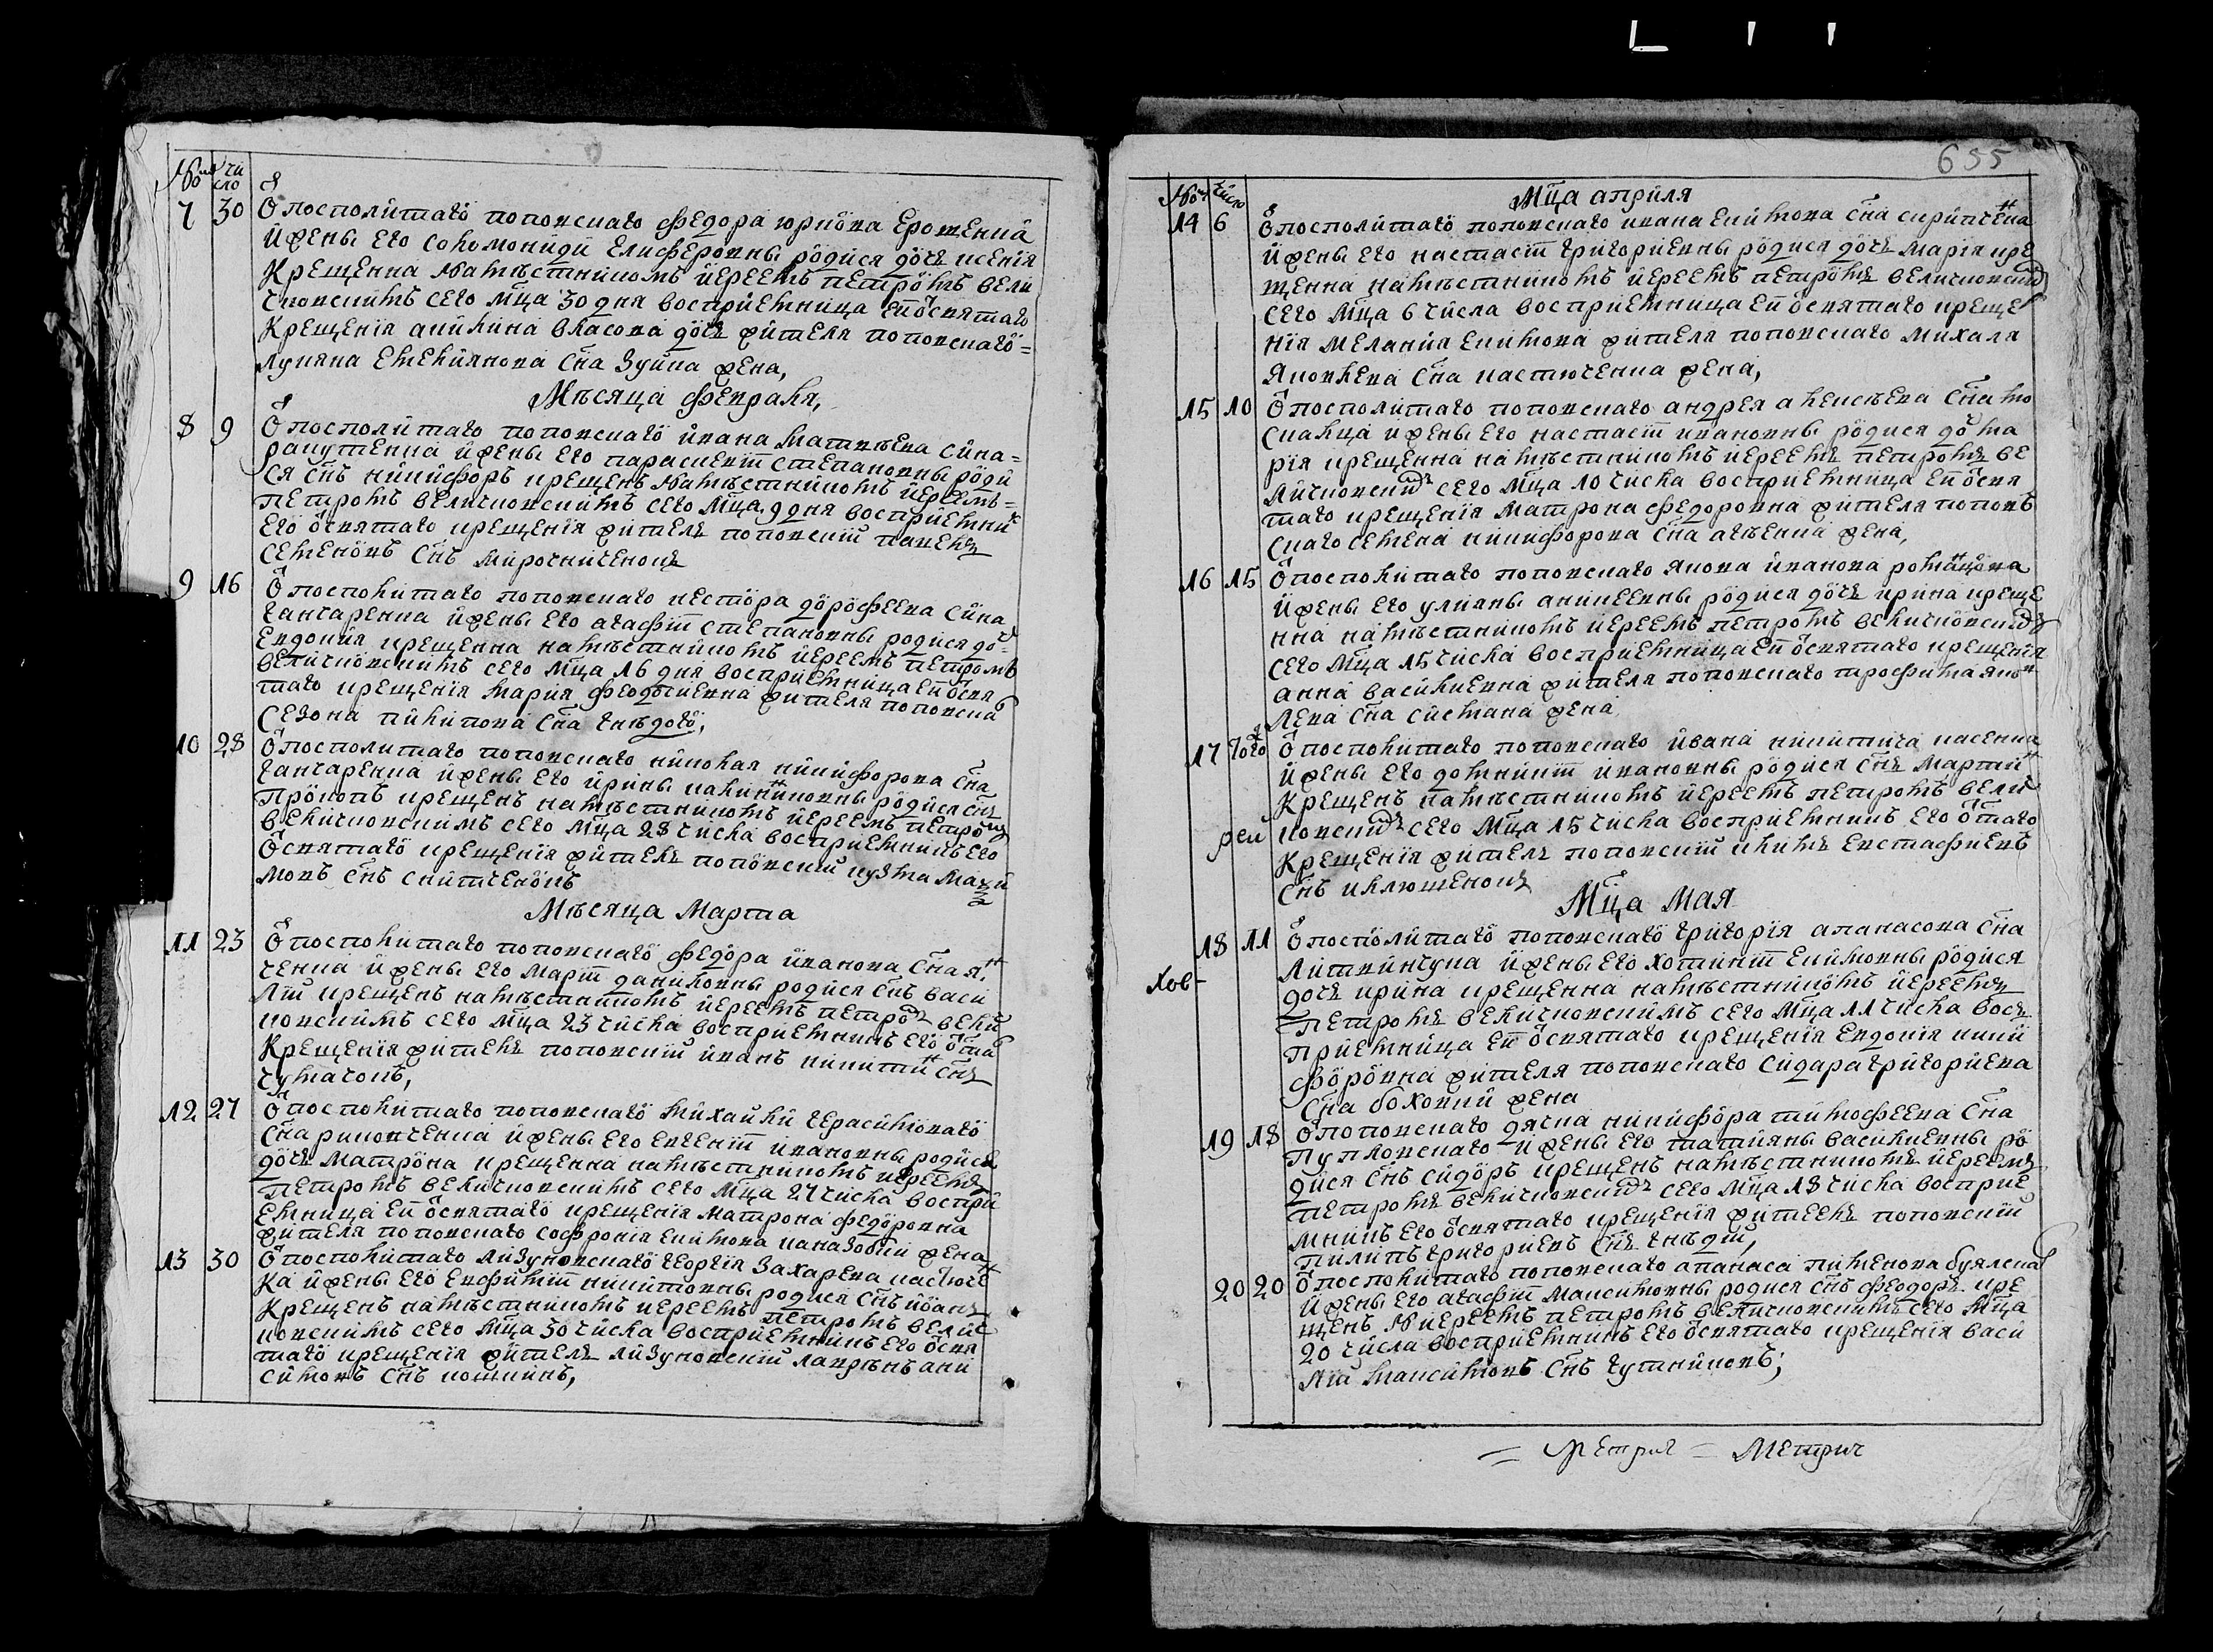 чи
сло
7 30 Ѿ посполитаго поповскаго федора юриова Ерошенка
и жены его соломониди Елисферовны родися дочь ксения
крещенна намѣстникомъ иереемъ петромъ вели
чковскимъ сего мца 30 дня восприемница еи ѿ святаго
крещения акилина власова дочь жителя поповскаго
лукяна емелиянова сна зуика жена,
Мѣсяца февраля,
8 9 Ѿ посполитаго поповскаго ивана матвѣева сина
ракушенка и жены его параскевии степановны роди
ся снъ никифоръ крещенъ намѣстникомъ иереемъ
петромъ величковскимъ сего мца 9 дня восприемни
его ѿ святаго крещения житель поповский павелъ
семеновъ снъ мирочниченокъ
9 16 Ѿ посполитаго поповскаго нестора дорофеева сина
ганчаренка и жены его агафии степановны родися до
евдокия крещенна намѣстникомъ иереемъ петромъ
величковскимъ сего мца 16 дня восприемница еи ѿ свя
таго крещения мария феодосиевна жителя поповска
сезона пилипова сна гнѣдого,
10 28 Ѿ посполитаго поповскаго николая никифорова сна
ганчаренка и жены его ирины калиниковны родися снъ
прокопъ крещенъ намѣстникомъ иереемъ петромъ
величковскимъ сего мца 28 числа восприемникъ его
ѿ святаго крещения житель поповский кузма макси
мовъ снъ скитченокъ
Мѣсяца Марта
11 23 Ѿ посполитаго поповскаго федора иванова сна ян
ченка и жены его марии даниловны родися снъ васи
лий крещенъ намѣстникомъ иереемъ петромъ велич
ковскимъ сего мца 23 числа восприемникъ его ѿ ста
крещения житель поповский иванъ никитин снъ
чумачокъ,
12 27 Ѿ посполитаго поповскаго михайли герасимоваго
сна риковченка и жены его евгении ивановны родися
дочь матрона крещенна намѣстникомъ иереемъ
петромъ величковскимъ сего мца 27 числа воспри
емница еи ѿ святаго крещения матрона федоровна
жителя поповскаго софрония екимова каназобки жена
13 30 Ѿ посполитаго лизуновскаго георгия захарева настюче
ка и жены его евфимии никитовны родися снъ иоанъ
крещенъ намѣстникомъ иереемъ петромъ велич
ковскимъ сего мца 30 числа восприемникъ его ѿ свя
таго крещения житель лизуновский лаврѣнъ ани
симовъ снъ кошикъ,
655
число
Мца априля
14 6 Ѿ посполитаго поповскаго ивана екимова сна скрипченка
и жены его настасии григориевны родися дочь мария кре
щенна намѣстникомъ иереемъ петромъ величковским
сего мца 6 числа восприемница еи ѿ святаго креще
ния мелания екимова жителя поповскаго михаля
яковлева сна настюченка жена,
15 10 Ѿ посполитаго поповскаго андрея алексѣева сна мо
скалца и жены его настасии ивановны родися до ма
рия крещенна намѣстникомъ иереемъ петромъ ве
личковским сего мца 10 числа восприемница еи ѿ свя
таго крещения матрона федоровна жителя поповъ
скаго семена никифорова сна агѣенка жена,
16 15 Ѿ посполитаго поповскаго якова иванова романцова
и жены его улияны аникеевны родися дочь ирина креще
нна намѣстникомъ иереемъ петромъ величковским
сего мца 15 числа восприемница еи ѿ святаго крещения
анна василиевна жителя поповскаго трофима яков
лева сна систана жена
17 Того ж Ѿ посполитаго поповскаго ивана никитича касенка
и жены его домникии ивановны родися снъ мартин
крещенъ намѣстникомъ иереемъ петромъ велич
рей ковским сего мца 15 числа восприемникъ его ѿ таго
крещения житель поповский климъ евстафиевъ
снъ иклюшенокъ
Мца мая
18 11 Ѿ посполитаго поповскаго григория апанасова сна
литвинчука и жены его хотинии екимовны родися
хов-
дочь ирина крещенна намѣстникомъ иереемъ
петромъ величковскимъ сего мца 11 числа вос
приемница еи ѿ святаго крещения евдокия ники
форовна жителя поповскаго сидара григориева
сна боховки жена
19 18 Ѿ поповскаго дяска никифора тимофеева сна
пупловскаго и жены его татияны василиевны ро
дися снъ сидоръ крещенъ намѣстникомъ иереемъ
петромъ величковским сего мца 18 числа восприе
мникъ его ѿ святаго крещения житеель поповский
пилипъ григориевъ снъ гнѣдий,
20 20 Ѿ посполитаго поповскаго апанаса пименова буялска
и жены его агафии максимовны родися снъ феодоръ кре
щенъ иереемъ петромъ величковскимъ сего мца
20 числа восприемникъ его ѿ святаго крещения васи
лий максимовъ снъ гутниковъ;
= Метрич = Метрич